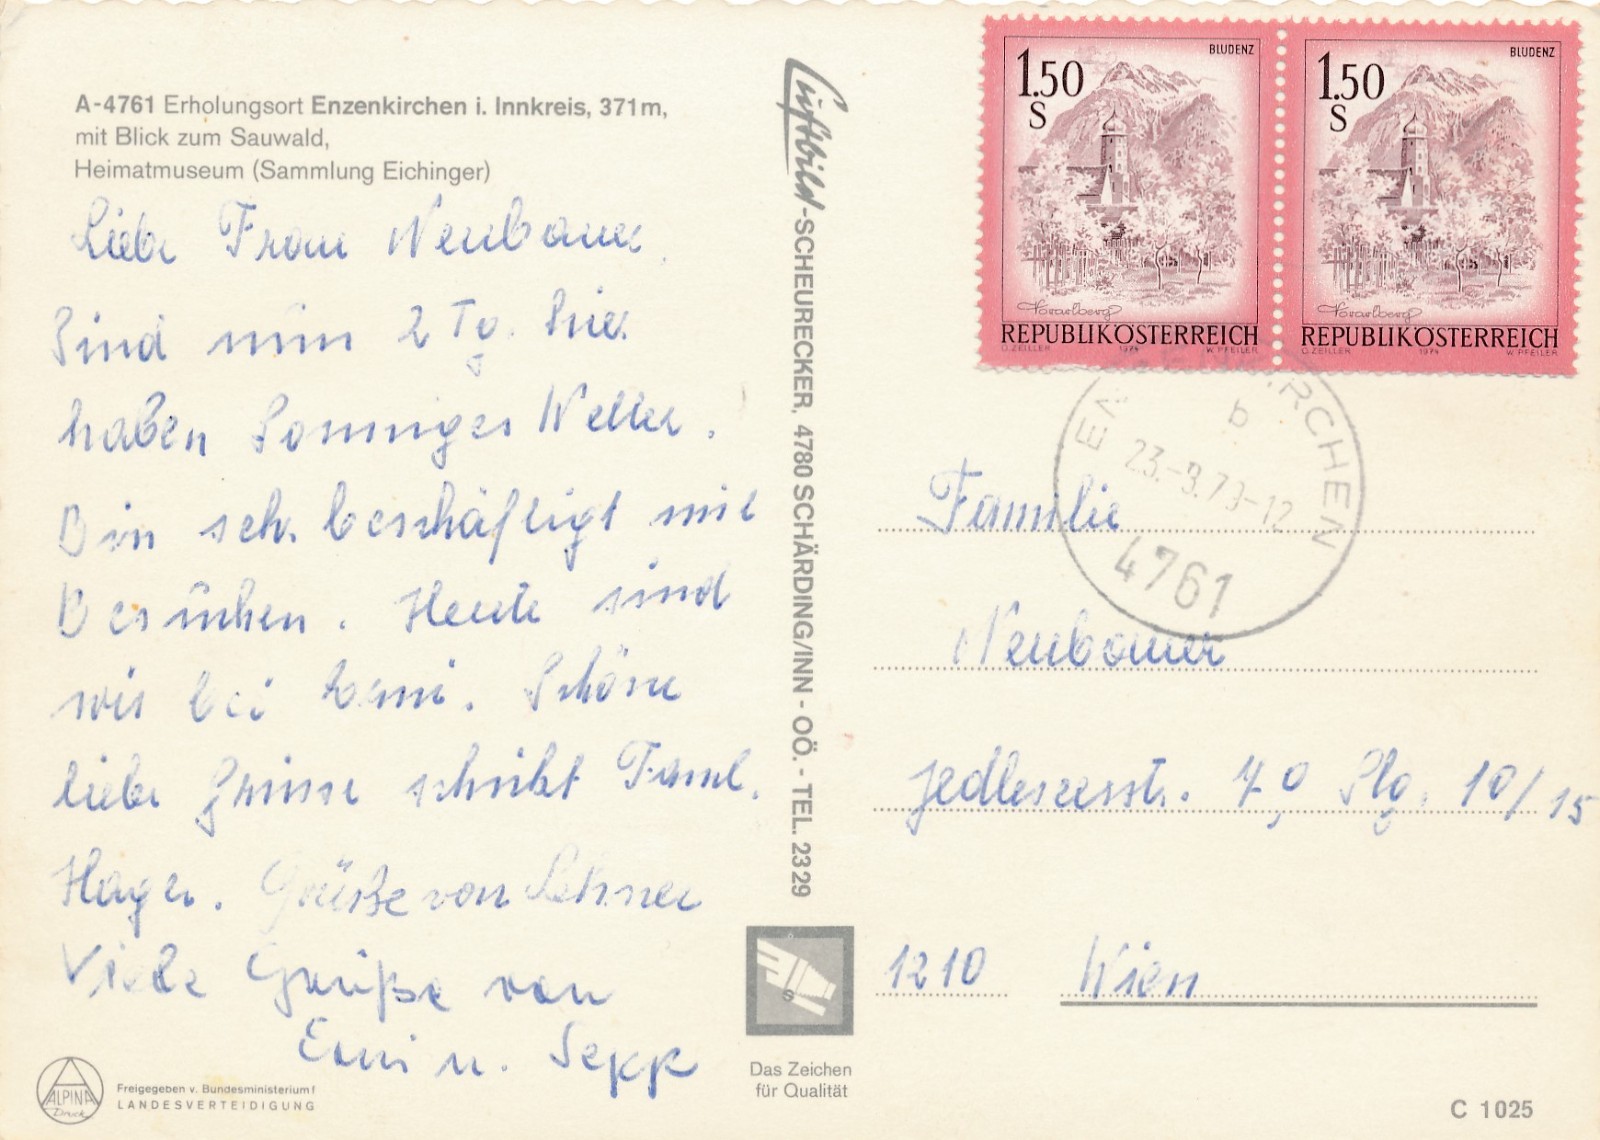 A-4761 Erholungsort Enzenkirchen i. Innkreis, 371m,
mit Blick zum Sauwald,
Heimatmuseum (Sammlung Eichinger)
Liebe Frau Neubauer
Sind nun 2 Tg. hier
haben Sonniges Wetter.
Bin seh. beschäftigt mit
Besuchen. Heute sind
wir bei Erni. Schöne
liebe Grüsse schreibt Faml.
Hager. Grüße von Lehner
Viele Grüße von
Erni u. Sepp
Freigegeben v. Bundesministerium f
LANDESVERTEIDIGUNG
ALPINA
Druck
Luftbild-SCHEURECKER, 4780 SCHÄRDING/INN - OÖ. - TEL. 2329
Das Zeichen
für Qualität
BLUDENZ
1.50
S
Vorarlberg
REPUBLIK ÖSTERREICH
O. ZEILLER 1974 W. PFEILER
BLUDENZ
1.50
S
Vorarlberg
REPUBLIK ÖSTERREICH
O. ZEILLER 1974 W. PFEILER
ENZENKIRCHEN
b
4761
Familie
Neubauer
Jedleseerstr. 10/15
1210 Wien
C 1025